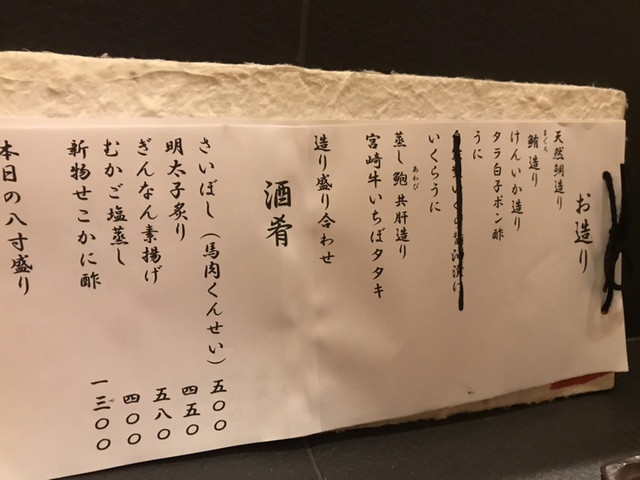 お造り
天然鯛造り
鮪造り
まぐろ
けんいか造り
タラ白子ポン酢
うに
いくらうに
蒸し鮑共肝造り
あわび
宮崎牛いちぼタタキ
造り盛り合わせ
酒肴
さいぼし（馬肉くんせい）五〇〇
明太子炙り 四五〇
ぎんなん素揚げ 五八〇
むかご塩蒸し 四〇〇
新物せこかに酢 一三〇〇
本日の八寸盛り